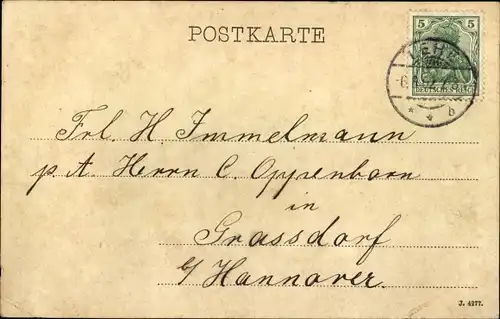 POSTKARTE
5 5
DEUTSCHES REICH
LEHE
b
Frl. H. Immelmann
p. A. Herrn C. Oppenborn
in
Grassdorf
b/ Hannover.
J. 4277.